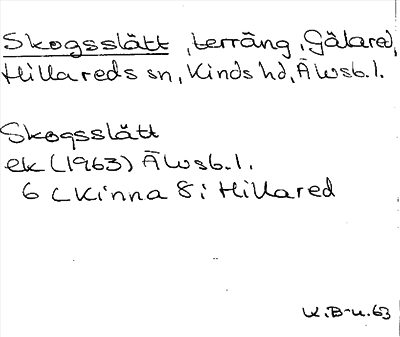 Skogsslätt, terräng, Gälared,
Hillareds sn, Kinds hd, Älvsb. l.
Skogsslätt
ek (1963) Älvsb. l.
6 C Kinna 8 i Hillared
K. B-n. 63